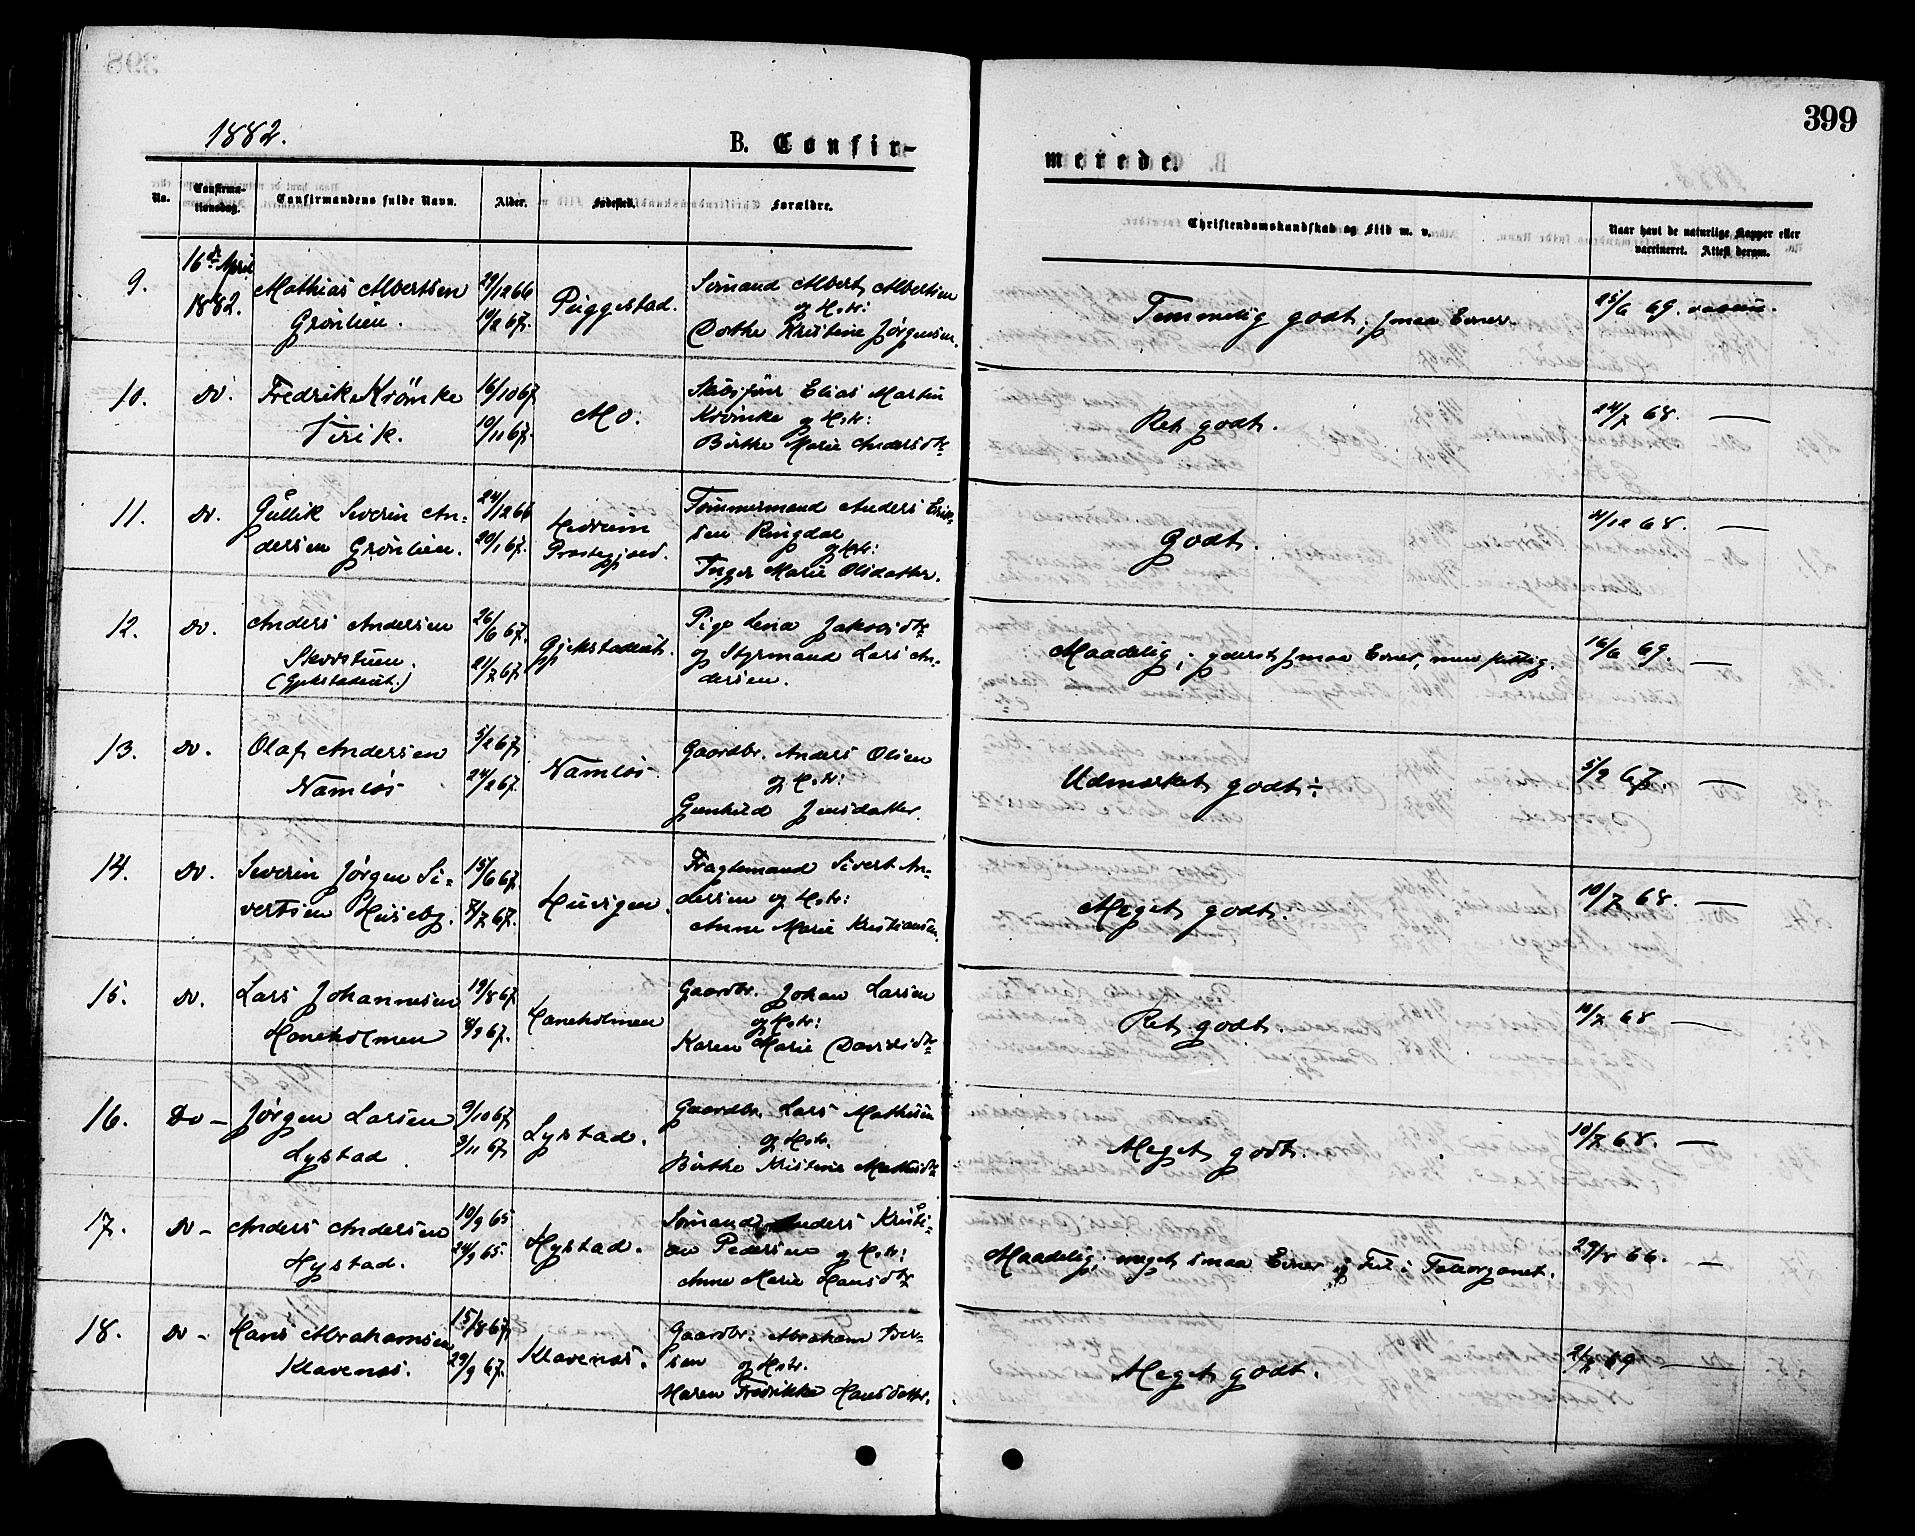 399
1882.
B. Confir-
merede.
No.
Confirma-
tionsdag.
Confirmandens fulde Navn.
Alder.
Fødested.
Forældre.
Christendomskundskab og Flid m. v.
Naar havt de naturlige Kopper eller
vaccineret. Attest derom.
9.
16de April
1882.
Mathias Albertsen
Grønlien.
29/12 66
19/2 67.
Puggestad.
Sømand Albert Albertsen
og Hstr:
Dorthe Kristine Jørgensen.
Temmelig godt; smaa Evner.
25/6 69. vaccin.
10.
Do.
Fredrik Krömke
Tirik.
16/10 67
10/11 67.
Mo.
Elias Martin
Krömke og Hstr:
Birthe Marie Andersdtr
Ret godt.
24/7 68.
11.
Do.
Gullik Severin An-
dersen Grønlien.
24/12 66
20/1 67.
Hedrum
Prestegjeld.
Tømmermand Anders Erik-
sen Ringdal
og Hstr:
Inger Marie Olsdatter.
Godt.
21/12 68.
12.
Do.
Anders Andersen
Skovstuen.
(Gjekstadeut.)
26/6 67.
21/7 67.
Gjekstadeut.
Pige Lena Jakobsdtr
og Styrmand Lars An-
dersen.
Maadelig; yderst smaa Evner, men flittig.
16/6 69.
13.
Do.
Olaf Andersen
Namløs
5/2 67.
24/2 67.
Namløs.
Gaardbr. Anders Olsen
og Hstr:
Gunhild Jensdatter.
Udmærket godt ÷
5/9 67.
14.
Do.
Severin Jørgen Si-
vertsen Huseby.
15/6 67.
7/7 67.
Huvigen.
Fragtemand Sivert An-
dersen og Hstr:
Anne Marie Kristiansen.
Meget godt.
10/7 68.
15.
Do.
Lars Johannesen
Haneholmen
19/8 67
8/9 67.
Haneholmen
Gaardbr. Johan Larsen
og Hstr:
Karen Marie Davidsdtr
Ret godt.
10/7 68
16.
Do -
Jørgen Larsen
Lystad
9/10 67.
3/11 67.
Lystad.
Gaardbr. Lars Mathisen
og Hstr.
Birthe Kristine Mathisdtr
Meget godt.
10/7 68.
17.
Do -
Anders Andersen
Hystad.
10/9 65
24/9 65.
Hystad.
Sømand Anders Kristi-
an Pedersen og Hstr:
Anne Marie Hansdtr
Maadelig; meget smaa Evner og Feil i Taleorganet.
29/8 66.
18.
Do -
Hans Abrahamsen
Klavenes.
15/8 67.
29/9 67.
Klavenes.
Gaardbr. Abraham Iver-
sen og Hstr.
Maren Fredrikke Hansdatter.
Meget godt.
21/7 69